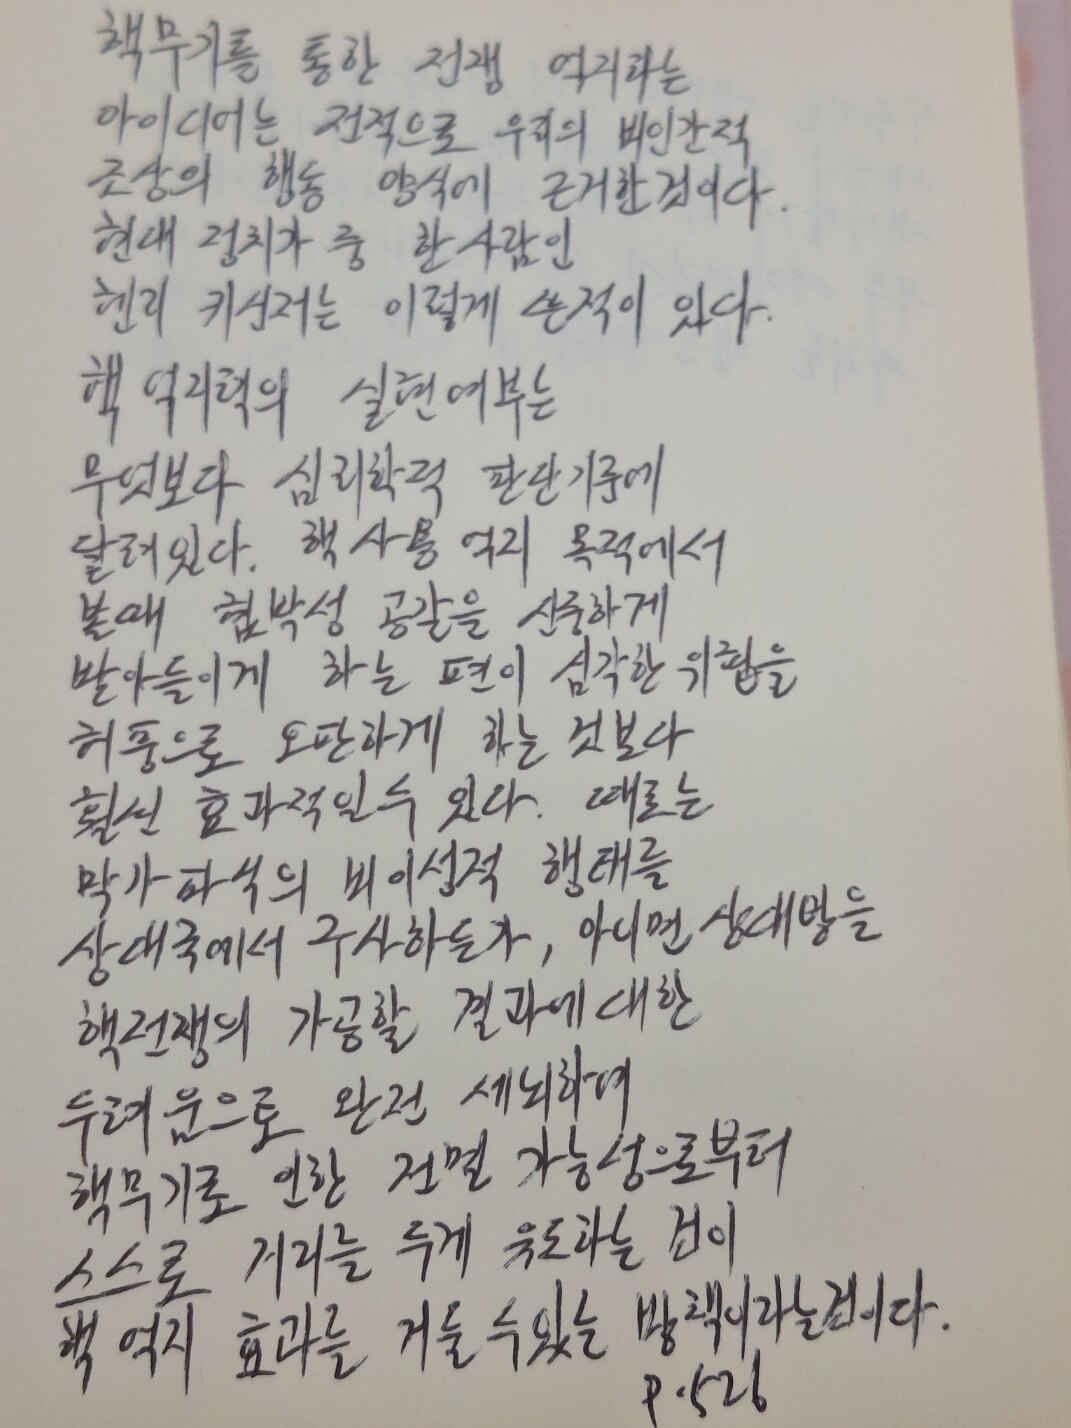 핵무기를 통한 전쟁 억지라는
아이디어는 전적으로 우리의 비인간적
조상의 행동 양식에 근거한것이다.
현대 정치가 중 한사람인
헨리 키신저는 이렇게 쓴적이 있다.
핵 억지력의 실현여부는
무엇보다 심리학적 판단기준에
달려있다. 핵사용 억지 목적에서
볼때 협박성 공갈을 신중하게
받아들이게 하는 편이 심각한 위협을
허풍으로 오판하게 하는 것보다
훨씬 효과적일수 있다. 때로는
막가파식의 비이성적 행태를
상대국에서 구사하든가, 아니면 상대방을
핵전쟁의 가공할 결과에대한
두려움으로 완전 세뇌하여
핵무기로 인한 전멸 가능성으로부터
스스로 거리를 두게 유도하는 것이
핵 억지 효과를 거둘 수있는 방책이라는것이다.
P.526